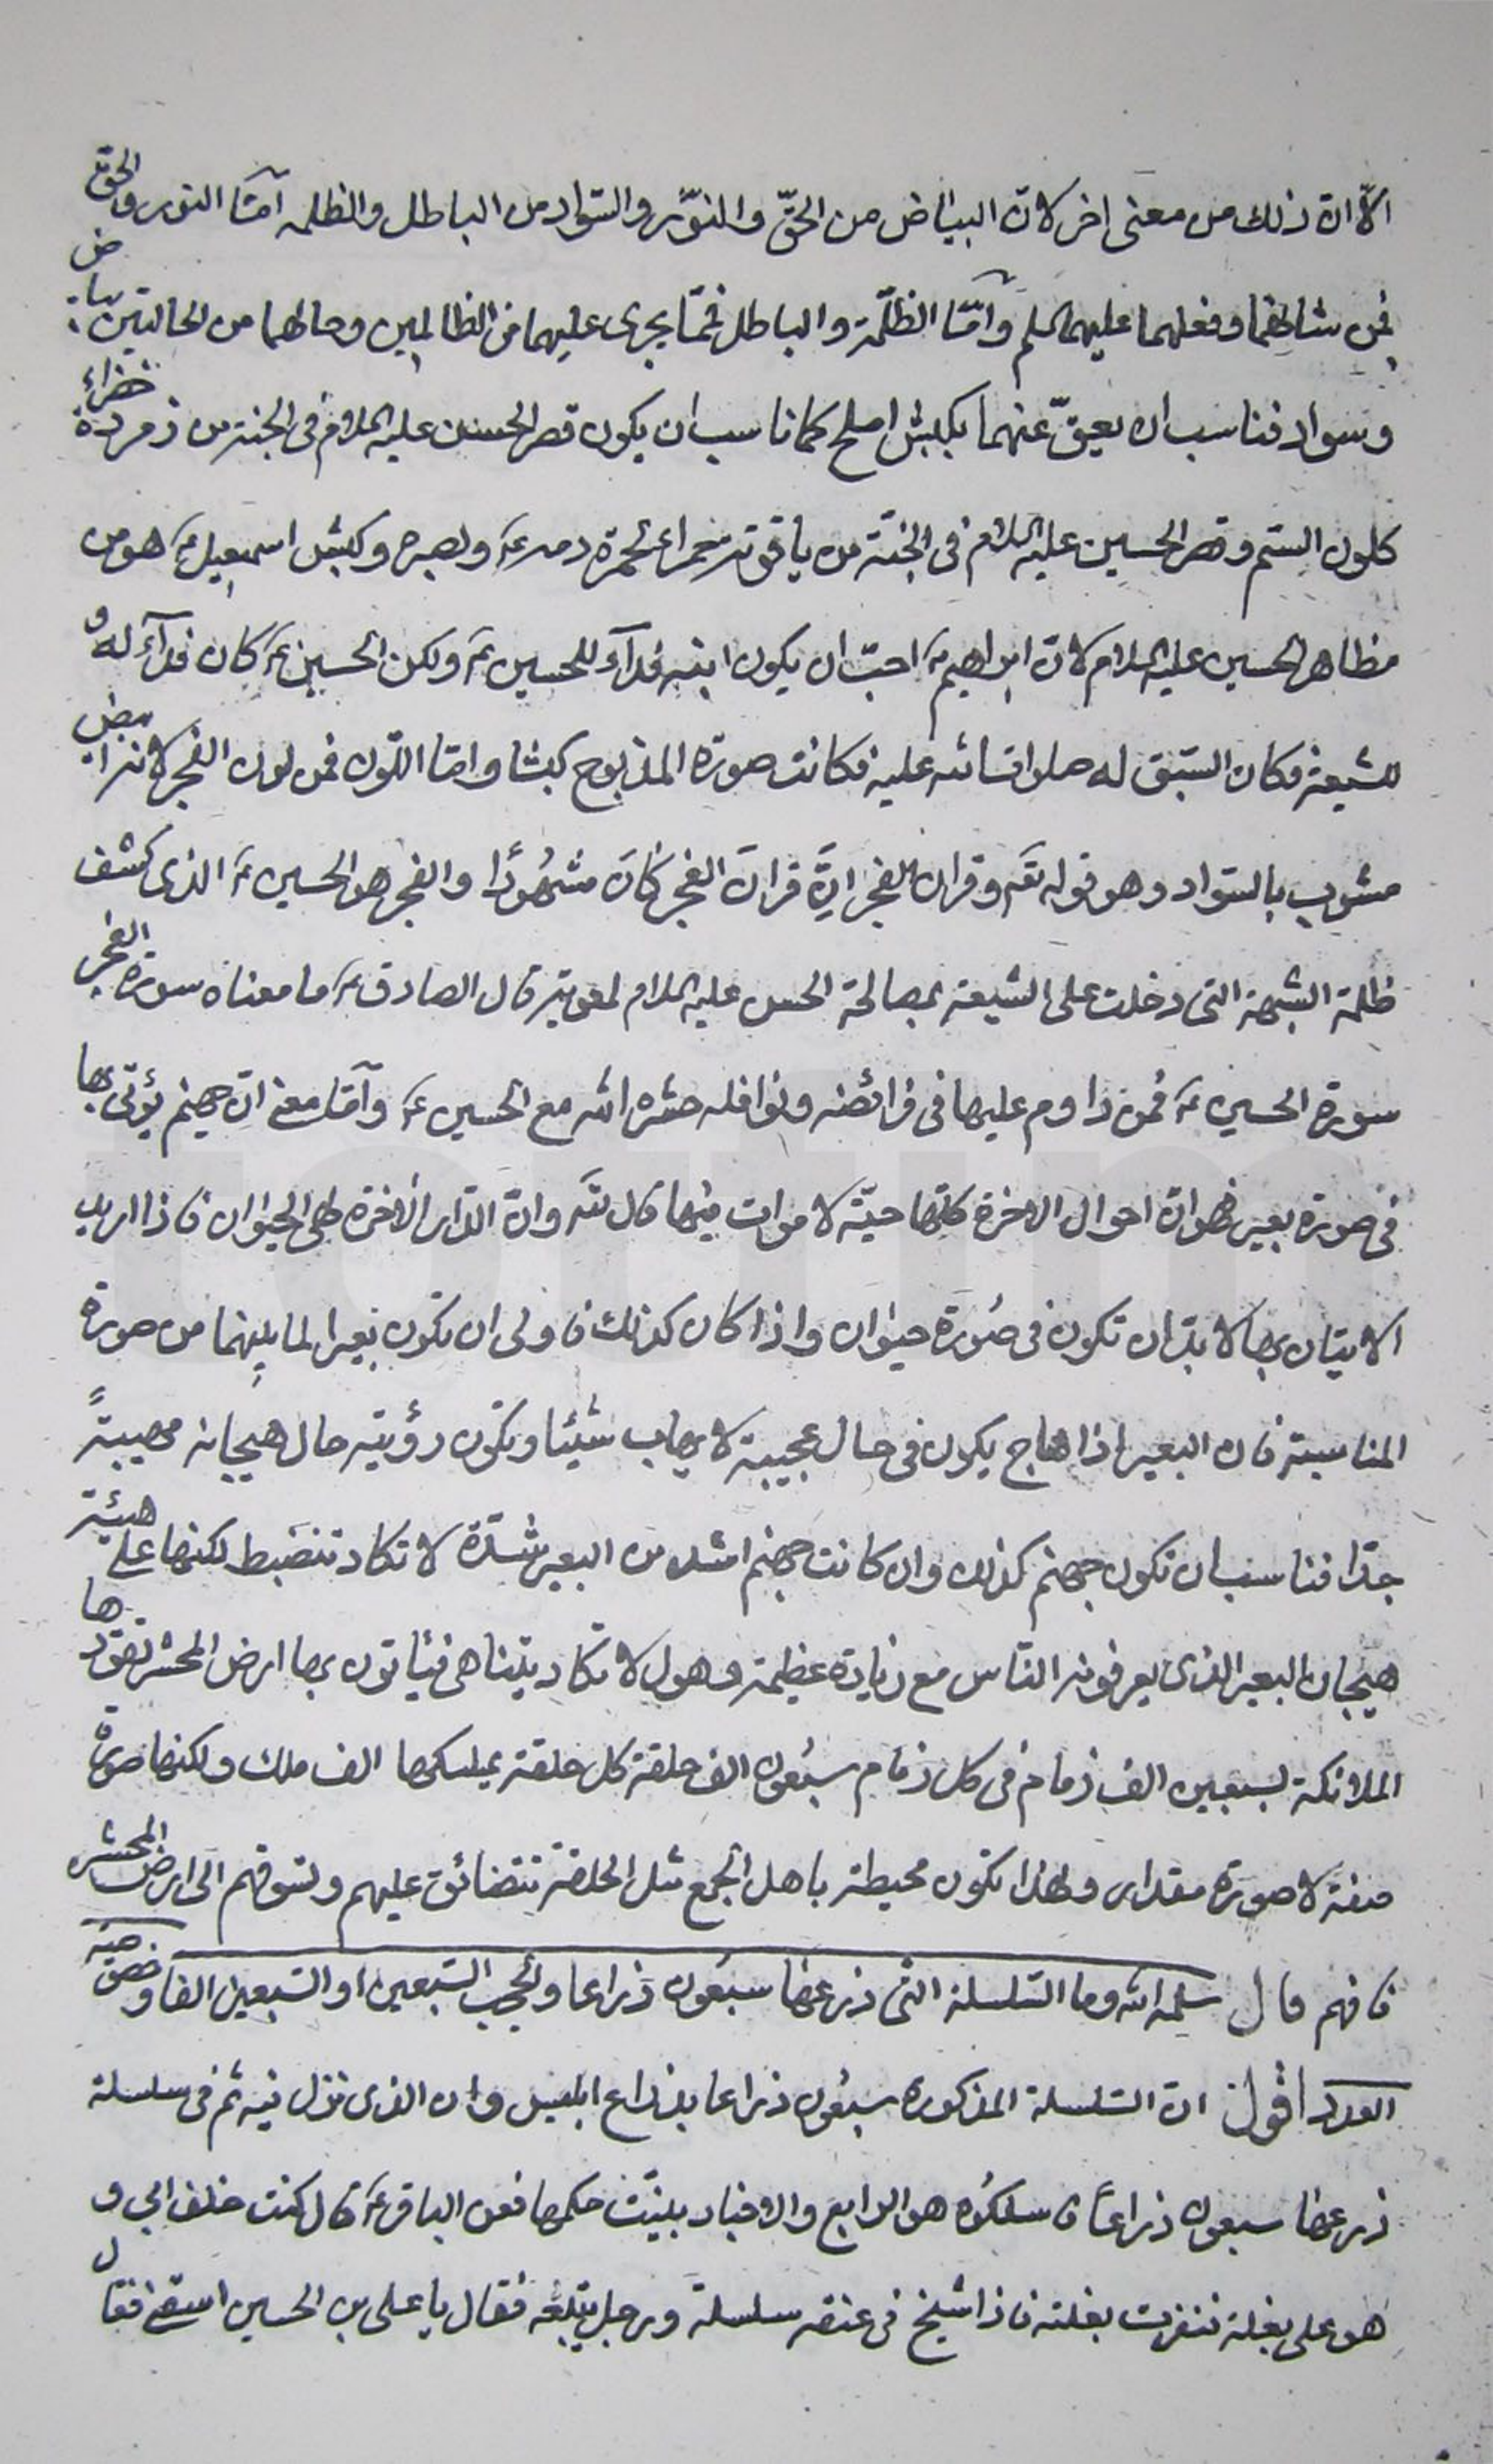 الّا انّ ذلك من معنى اخر لانّ البياض من الحقّ والنوّر والسّواد من الباطل والظلمه امّا النور والحقّ
فمن شانهما وفعلهما عليهما السلم وامّا الظلّمة والباطل فممّا يجرى عليهما من الظالمين وحالهما من الحالتين بياض
وسواد فناسب ان يعقّ عنهما بكبش املح كما ناسب ان يكون قصر الحسن عليه السلام فى الجنة من زمردة خضراء
كلون السّم وقصر الحسين عليه السلام فى الجنّة من ياقوتة حمراء لحمرة دمه ع ونصره وكبش اسمعيل ع هو من
مظاهر الحسين عليه السلام لانّ ابراهيم ع احبّ ان يكون ابنه فدآء للحسين ع ولكن الحسين ع كان فدآء له و
للشيعة فكان السّبق له صلوات الله عليه فكانت صورة المذبوح كبشا وامّا اللّون فمن لون الفجر لانه ابيض
مشوب بالسّواد وهو قوله تعالى وقران الفجر انّ قران الفجر كان مشهُودًا والفجر هو الحسين ع الذى كشف
ظلمة الشبهة التى دخلت على الشيعة بمصالحة الحسن عليه السلام لمعوية قال الصادق ع ما معناه سورة الفجر
سورة الحسين ع فمن داوم عليها فى فرائضه ونوافله حشره الله مع الحسين ع وامّا معنى انّ جهنم يؤتى بها
فى صورة بعير فهو انّ احوال الاخرة كلّها حيّة لا موات فيها قال تعالى وانّ الدّار الاخرة لهى الحيوان فاذا اريد
الاتيان بها لا بدّ ان تكون فى صُورة حيوان واذا كان كذلك فاولى ان تكون بعيرا لما بينهما من صورة
المناسبة فان البعير اذا هاج يكون فى حال عجيبة لا يهاب شيئا وتكون رؤيته حال هيجانه مهيبةً
جدّا فناسب ان تكون جهنم كذلك وان كانت جهنم اشد من البعير شدّة لا تكاد تنضبط لكنها على هيئة
هيجان البعير الذى يعرفونه الناس مع زيادة عظيمة وهول لا تكاد يتناهى فياتون بها ارض المحشر تقودها
الملائكة بسبعين الف زمام فى كل زمام سبعون الف حلقة كل حلقة يمسكها الف ملك ولكنها صورة
صفة لا صورة مقدار ولهذا تكون محيطة باهل الجمع مثل الحلقة تتضائق عليهم وتسوقهم الى ارض المحشر
فافهم قال سلمه الله وما السّلسلة التى ذرعها سبعُون ذراعا والحجب السّبعين او السّبعين الفا وخصوصيّة
العدد اقول انّ السّلسلة المذكورة سبعُون ذراعا بذراع ابليس وان الذى نزل فيه ثم فى سلسلة
ذرعها سبعون ذراعاً فاسلكُوه هو الرابع والاخبار بيّنت حكمها فعن الباقر ع قال كنت خلف ابى و
هو على بغلة فنفرت بغلته فاذا شيخ فى عنقه سلسلة ورجل يتبعه فقال يا على بن الحسين اسقنى فقال